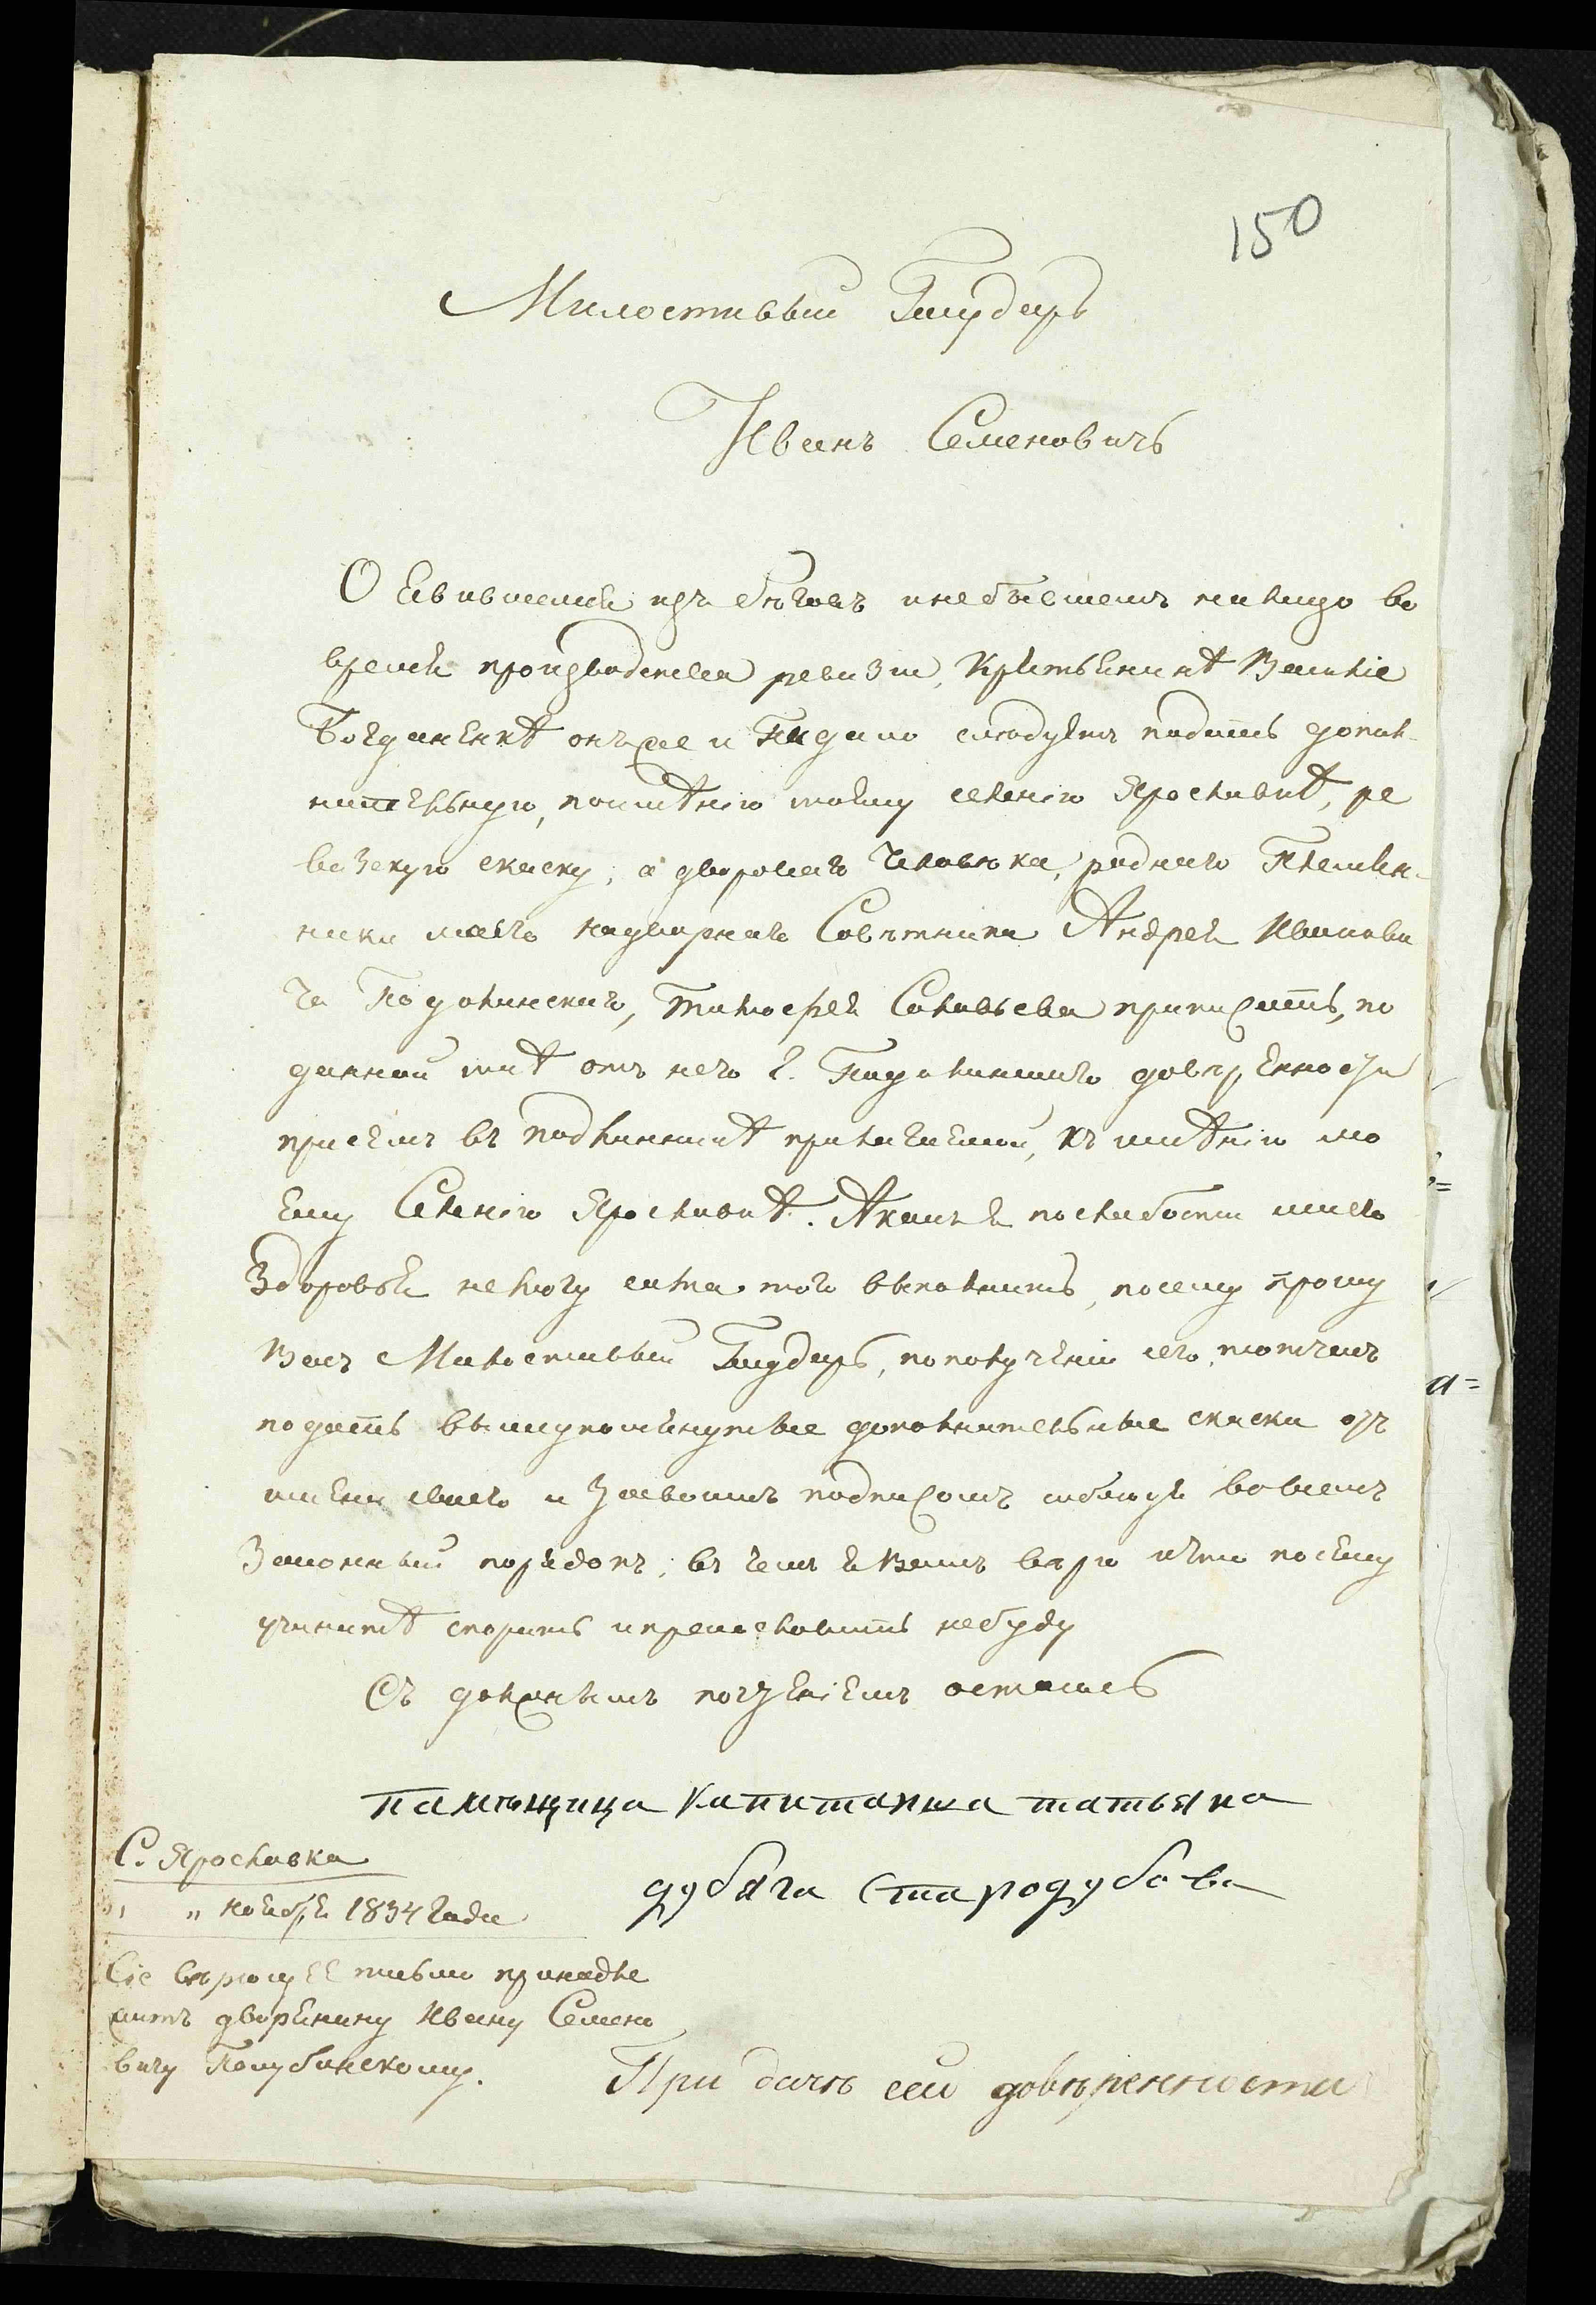 150
Милостивый Гсударь
Иванъ Семеновичъ
О явившемся изъ бѣговъ и небывшемъ на лицо во
время производства ревизіи, крѣстьянинѣ Василіе
Богданѣ онъже и слѣдуетъ подать допол-
нительную, по имѣнію моему селенію Ярославкѣ, ре
визскую скаску, а двороваго человѣка, роднаго племян-
ника моего надворнаго Совѣтника Андрея Иванови
ча Подолинскаго, Тимофея Савельева приписать, по
данной мнѣ отъ него г. Подолинскаго довѣренности
при семъ въ подлинникѣ прилагаемой, къ имѣнію мо
ему Селенію Ярославкѣ. А какъ я по слабости моего
здоровья не могу сама того выполнить, посему прошу
Васъ Милостивый Гсударь, по полученіи сего, тотчасъ
подать вышеупомянутые дополнительные скаски отъ
имени своего и за своимъ подписомъ соблюдя во всемъ
законный порядокъ, въ чемъ я Вамъ вѣрю и что по сему
учините спорить и прекословить небуду
Съ должнымъ почтеніемъ остаюсь
памѣщица капитанша татьяна
дубяга Стародубова
С. Ярославка
" " ноября 1834 года
Сіе вѣрющее письмо принадле
житъ дворянину Ивану Семено
вичу Голубинскому.
При дачѣ сей довѣренности